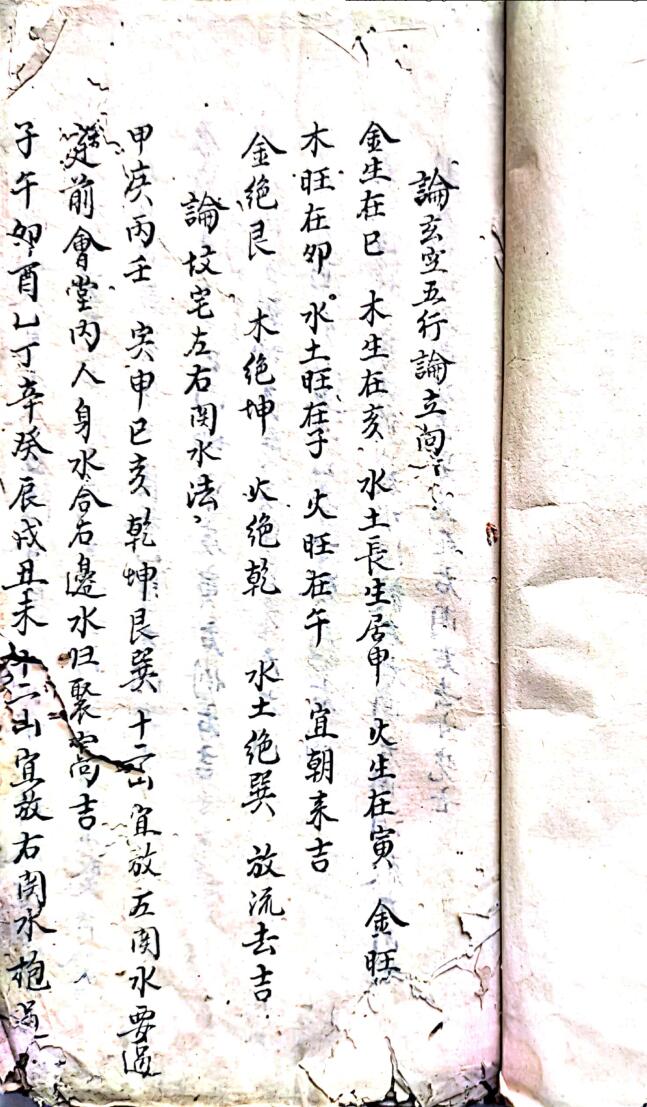 論玄空五行論立向
金生在巳 木生在亥 水土長生居申 火生在寅 金旺
木旺在卯 水土旺在子 火旺在午 宜朝来吉
金绝艮 木绝坤 火绝乾 水土绝巽 放流去吉
論坟宅左右関水法
甲庚丙壬 寅申巳亥 乾坤艮巽 十二山 宜放左関水要過
前會堂内人身水合右邊水归聚 吉
子午卯酉乙丁辛癸辰戌丑未十二山宜放右関水抱過